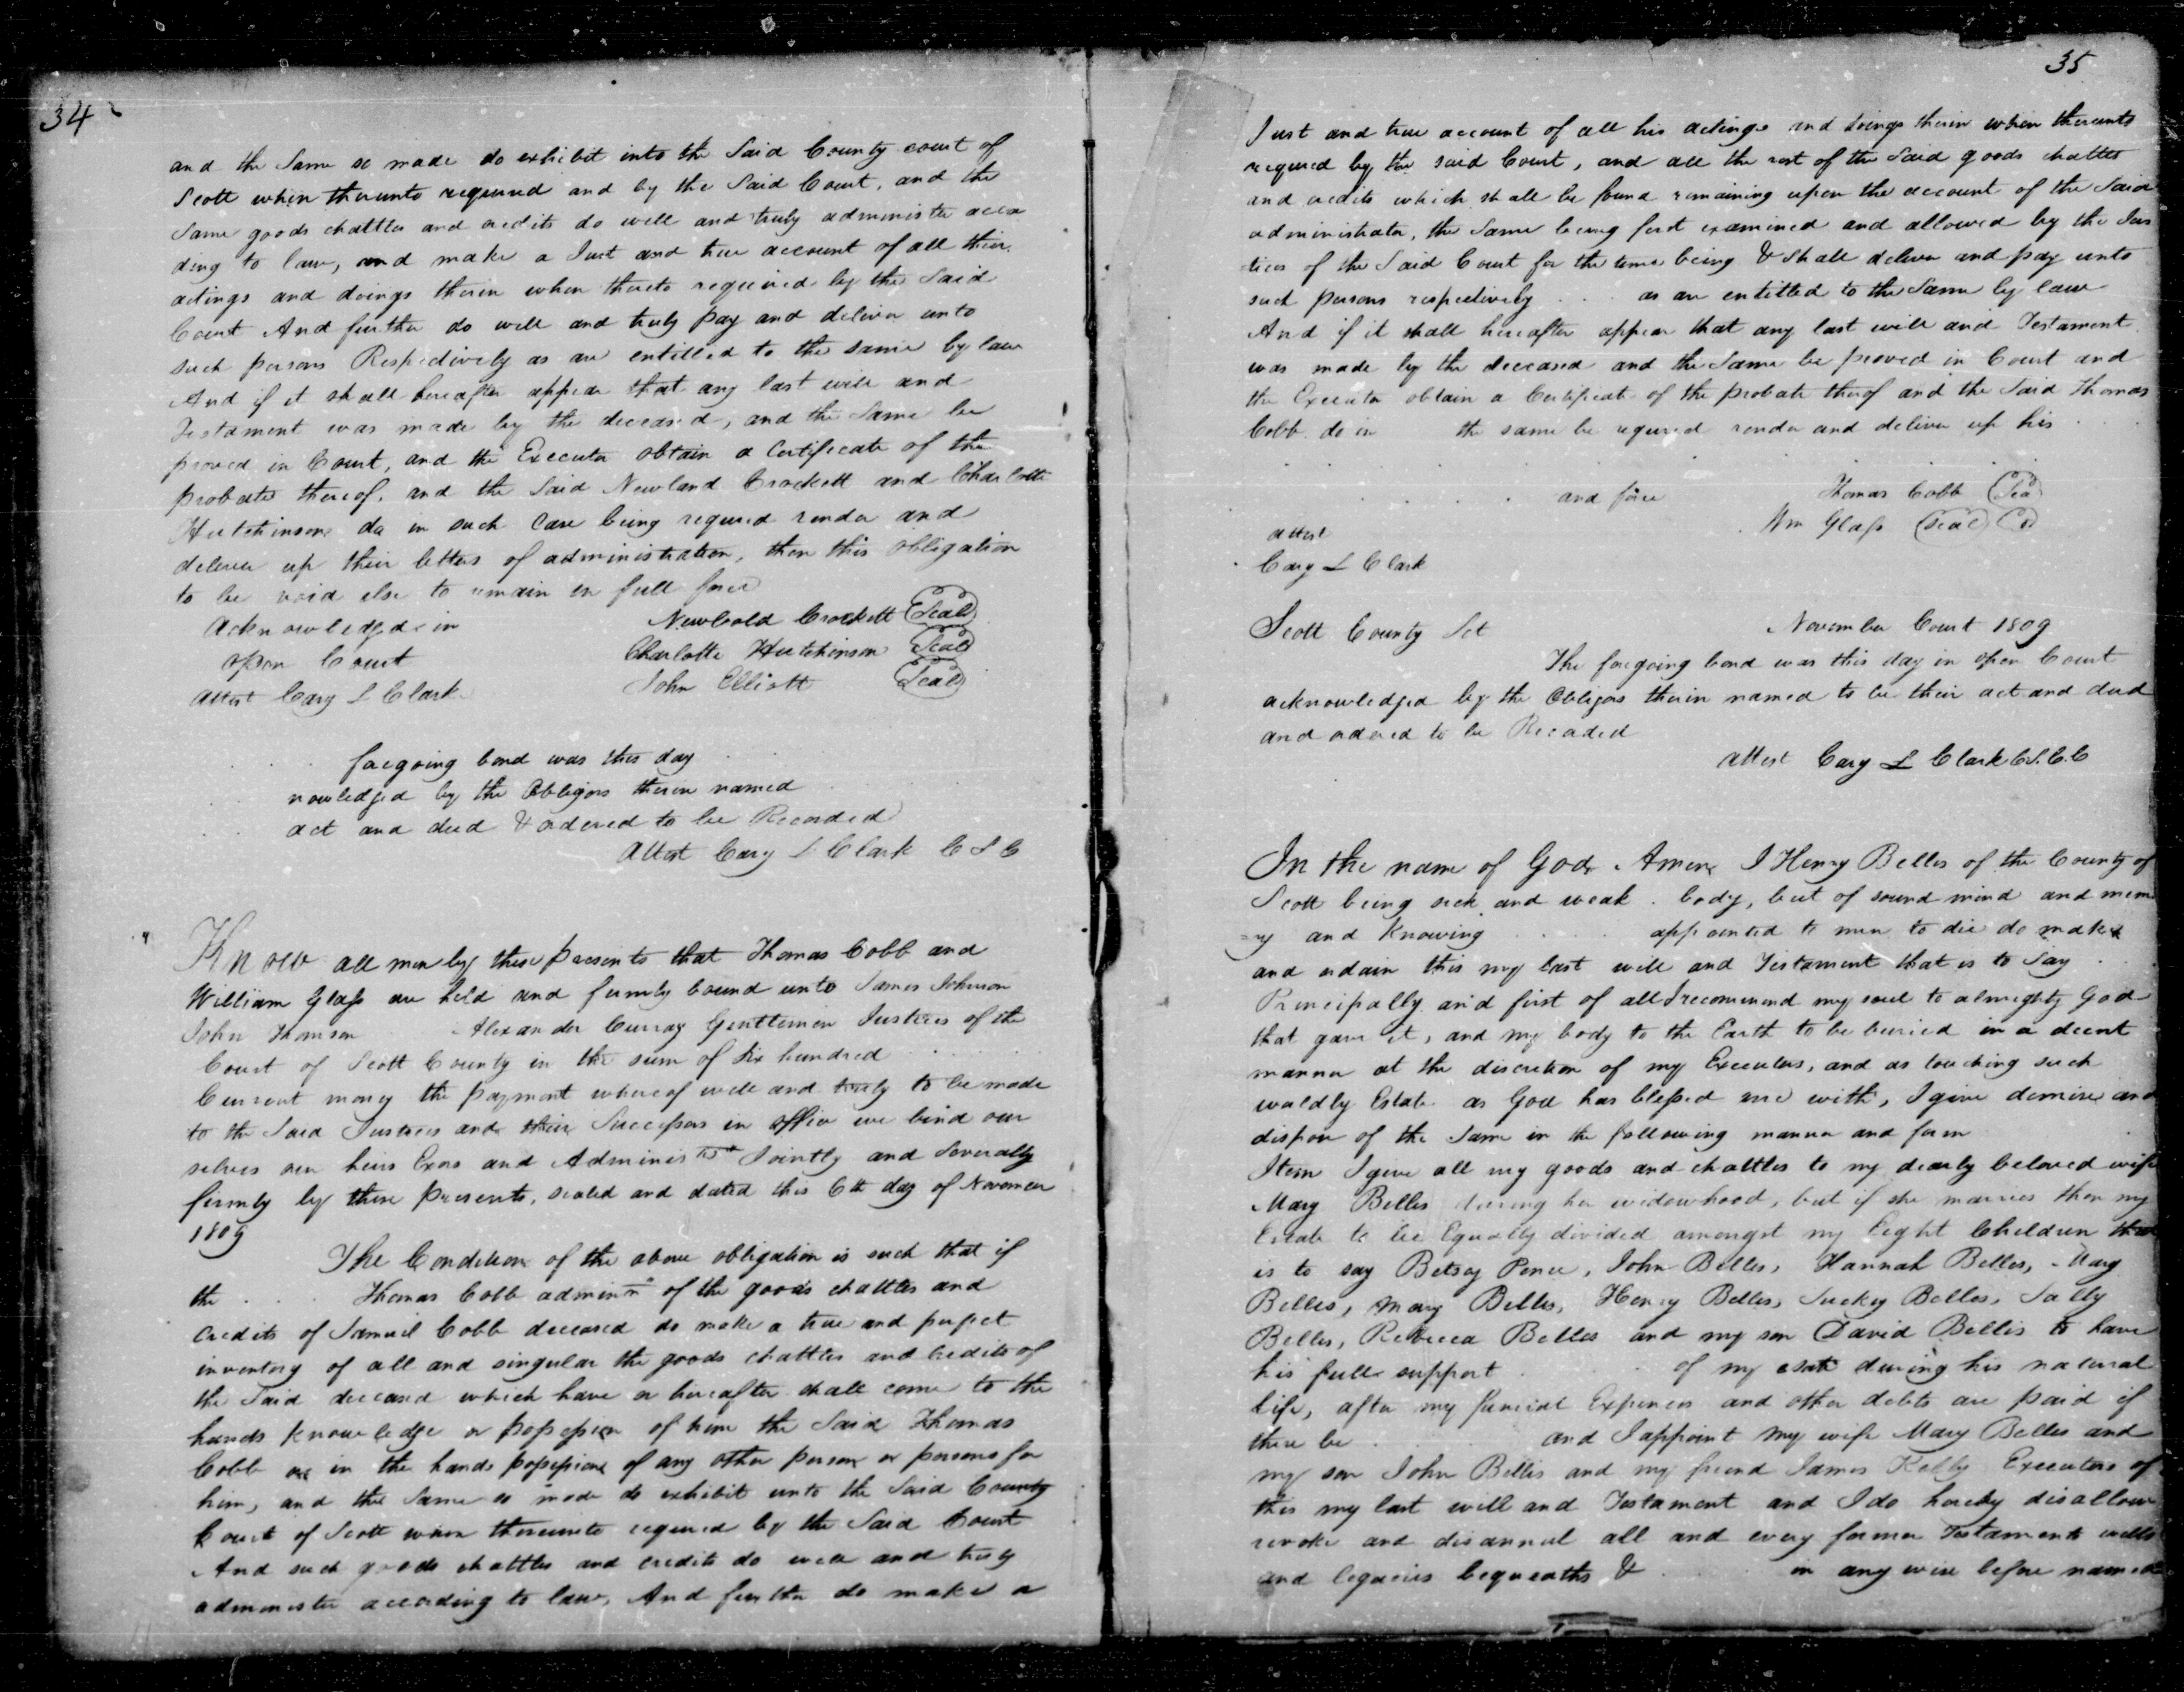 34
and the Same so made do exhibit into the Said County court of
Scott when thereunto required and by the Said Court, and the
Same goods chattles and credits do well and truly administer accor
ding to law, and make a Just and true account of all their
actings and doings therein when thereto required by the Said
Court And further do well and truly pay and deliver unto
such persons Respectively as are entitled to the same by law
And if it shall hereafter appear that any last will and
Testament was made by the deceased, and the Same be
proved in Court, and the Executor obtain a Certificate of the
probate thereof, and the Said Newland Crockett and Charlotte
Hutchinson do in such Case being required render and
deliver up their letters of administration, then this obligation
to be void else to remain in full force
Acknowledgd in Newbold Crockett Seal
open Court Charlotte Hutchinson Seal
attest Cary L Clark John Elliott Seal
. . . foregoing bond was this day . .
nowledged by the Obligors therein named
act and deed & ordered to be Recorded
Attest Cary L Clark C S C
Know all men by these presents that Thomas Cobb and
William Glass are held and firmly bound unto James Johnson
John Thomson Alexander Curray Gentlemen Justices of the
Court of Scott County in the sum of Six hundred . . . .
Current money the payment whereof well and truly to be made
to the Said Justices and their Successors in office we bind our
selves our heirs Exors and Administrs Jointly and Severally
firmly by these presents, sealed and dated this 6th day of November
1809
The Condition of the above obligation is such that if
the . . . Thomas Cobb adminr of the goods chattles and
Credits of Samuel Cobb deceased do make a true and perfect
inventory of all and singular the goods chattles and credits of
the Said deceased which have or hereafter shall come to the
hands knowledge or possession of him the Said Thomas
Cobb or in the hands possession of any other person or persons for
him, and the Same so made do exhibit unto the Said County
Court of Scott when thereunto required by the Said Court
And such goods chattles and credits do well and truly
administer according to law, And further do make a
35
Just and true account of all his actings and doings therein when thereunto
required by the said Court, and all the rest of the Said goods chattles
and credits which shall be found remaining upon the account of the Said
administrator, the Same being first examined and allowed by the Jus
tices of the Said Court for the time being & Shall deliver and pay unto
such persons respectively . . . as are entitled to the Same by law
And if it shall hereafter appear that any last will and Testament
was made by the deceased and the Same be proved in Court and
the Executor obtain a Certificate of the probate therof and the Said Thomas
Cobb do in the same be required render and deliver up his . . .
and force Thomas Cobb Sea
Wm Glass Seal
attest
Cary L Clark
Scott County Sct November Court 1809
The foregoing bond was this day in open Court
acknowledged by the Obligors therein named to be their act and deed
and ordered to be Recorded
Attest Cary L Clark C.S.C.C
In the name of God Amen I Henry Belles of the County of
Scott being sick and weak . body, but of sound mind and mem
ory and Knowing . . . . appointed to men to die do make
and ordain this my last will and Testament that is to Say . .
Principally and first of all I recommend my soul to almighty God
that gave it, and my body to the Earth to be buried in a decent
manner at the discretion of my Executors, and as touching such
worldly Estate as God has blessed me with, I give demise and
dispose of the Same in the following manner and form
Item I give all my goods and chattles to my dearly beloved wife
Mary Belles during her widowhood, but if she marries then my
Estate to be Equally divided amongst my Eight Children that
is to say Betsy Pence, John Belles, Hannah Belles, Mary
Belles, Mary Belles, Henry Belles, Suckey Belles, Sally
Belles, Rebecca Belles and my son David Bellis to have
his full support . . of my estate during his natural
life, after my funeral Expences and other debts are paid if
there be . . . and I appoint my wife Mary Belles and
my son John Bellis and my friend James Kelly Executors of
this my last will and Testament and I do hereby disallow
revoke and disannul all and every former Testaments wills
and legacies bequeaths & . . . in any wise before named